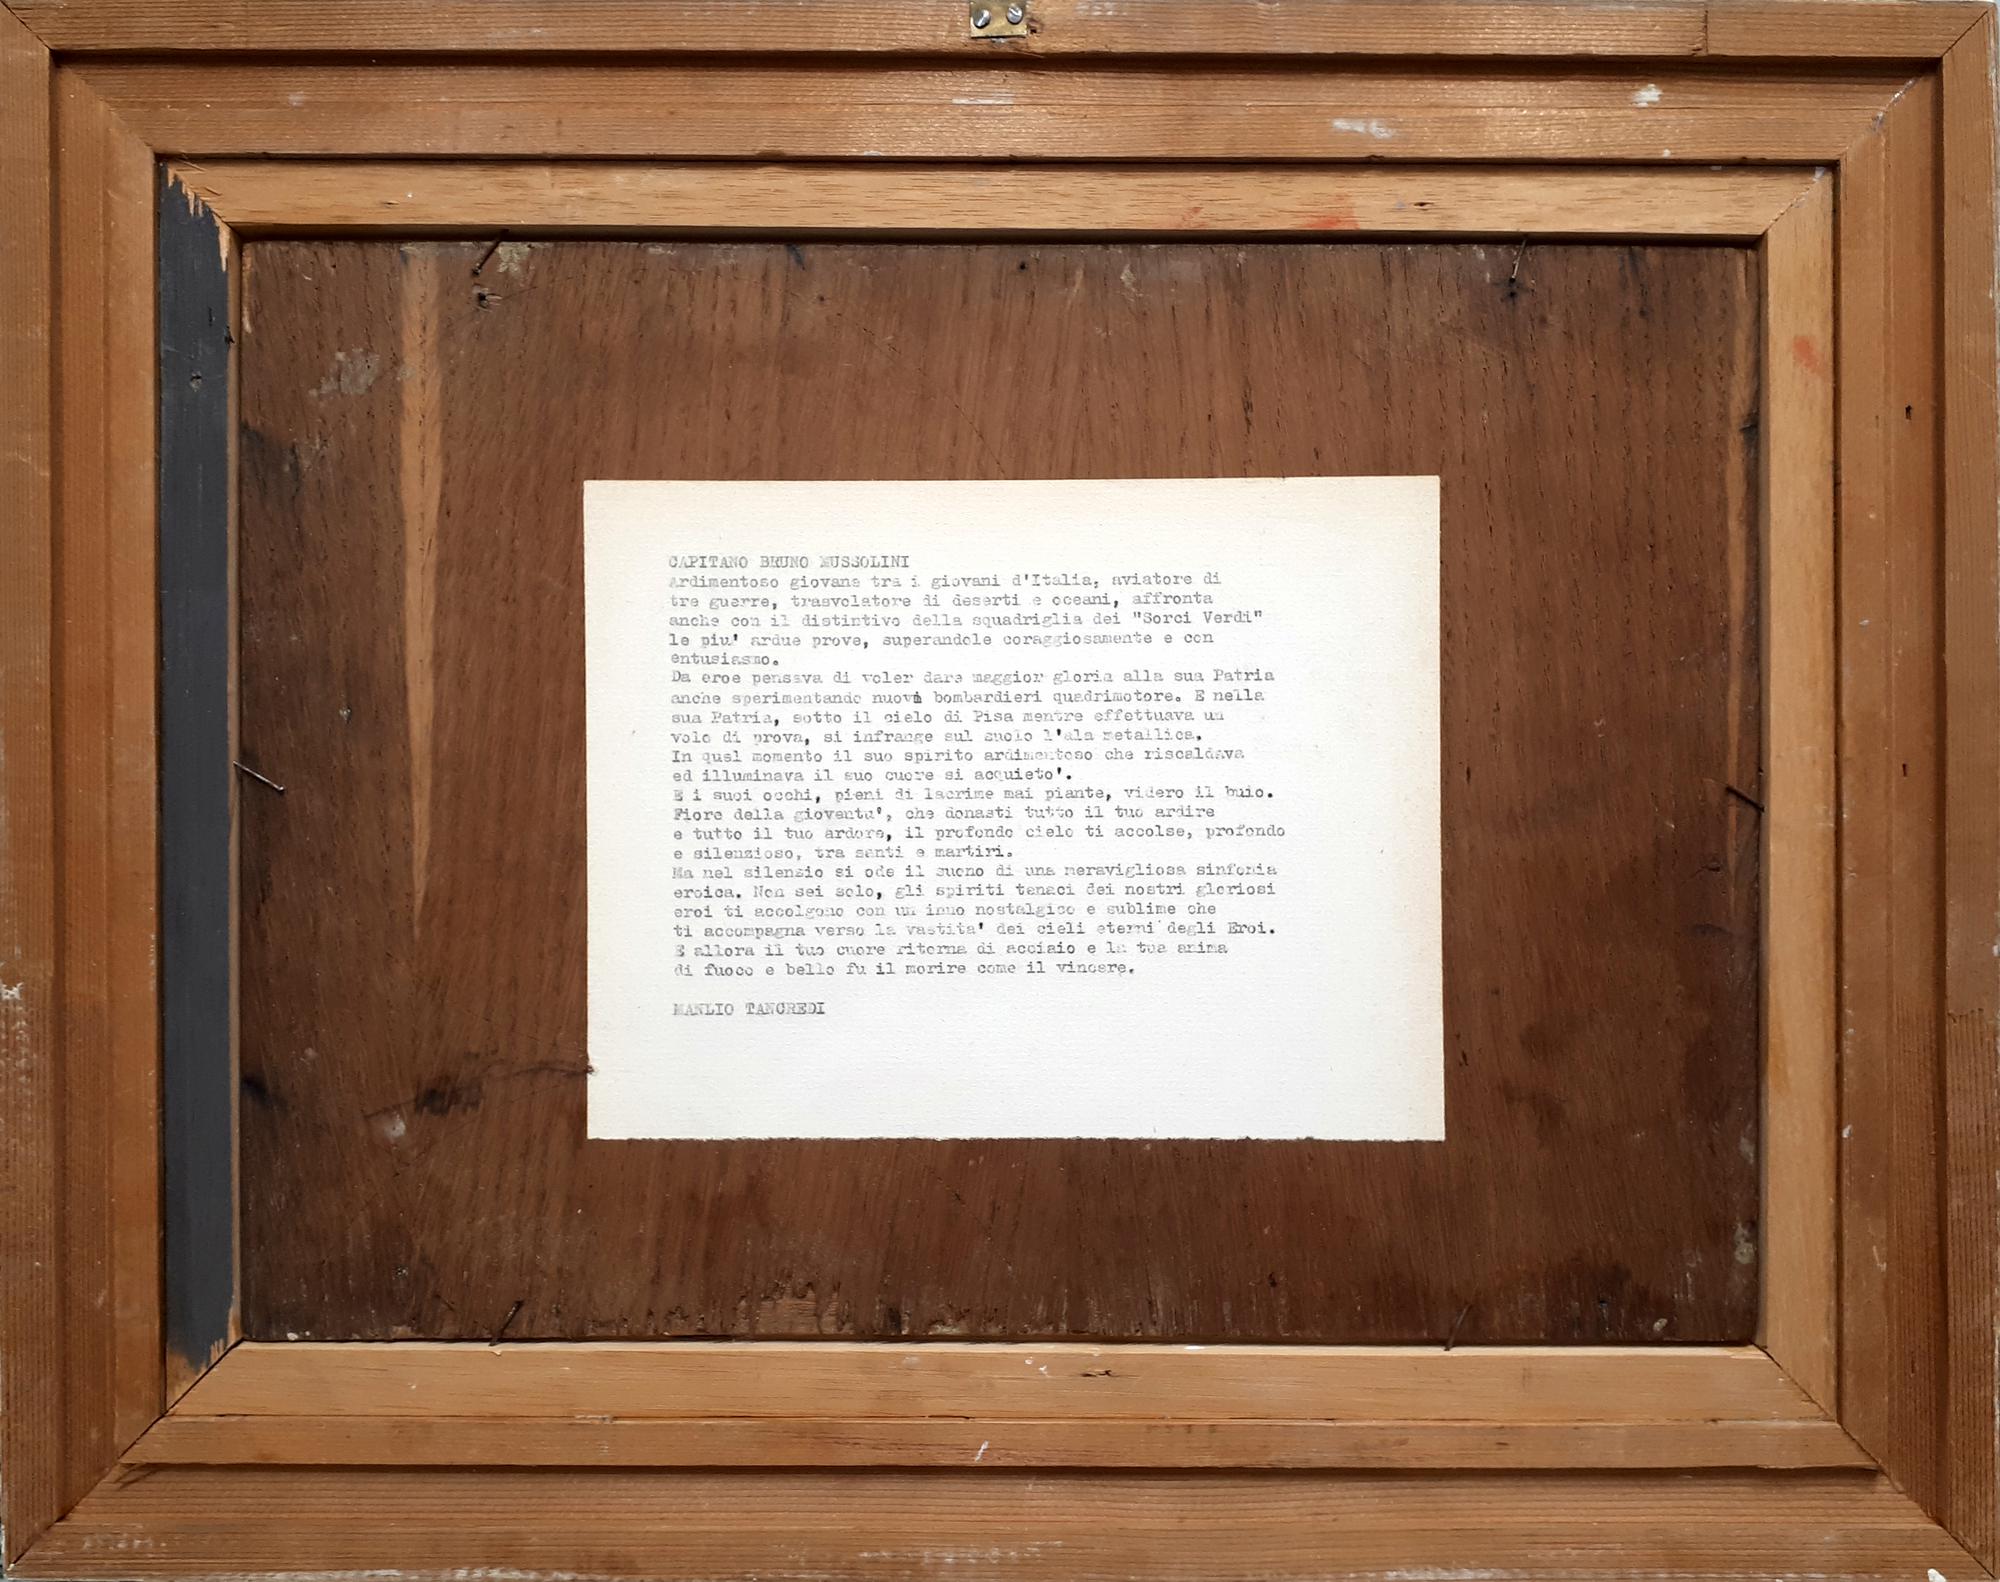 CAPITANO BRUNO MUSSOLINI
Ardimentoso giovane tra i giovani d'Italia, aviatore di
tre guerre, trasvolatore di deserti e oceani, affronta
anche con il distintivo della squadriglia dei "Sorci Verdi"
le piu' ardue prove, superandole coraggiosamente e con
entusiasmo.
Da eroe pensava di voler dare maggior gloria alla sua Patria
anche sperimentando nuovi bombardieri quadrimotore. E nella
sua Patria, sotto il cielo di Pisa mentre effettuava un
volo di prova, si infrange sul suolo l'ala metallica.
In quel momento il suo spirito ardimentoso che riscaldava
ed illuminava il suo cuore si acquieto'.
E i suoi occhi, pieni di lacrime mai piante, videro il buio.
Fiore della gioventu', che donasti tutto il tuo ardire
e tutto il tuo ardore, il profondo cielo ti accolse, profondo
e silenzioso, tra santi e martiri.
Ma nel silenzio si ode il suono di una meravigliosa sinfonia
eroica. Non sei solo, gli spiriti tenaci dei nostri gloriosi
eroi ti accolgono con un inno nostalgico e sublime che
ti accompagna verso la vastita' dei cieli eterni degli Eroi.
E allora il tuo cuore ritorna di acciaio e la tua anima
di fuoco e bello fu il morire come il vincere.
MANLIO TANCREDI